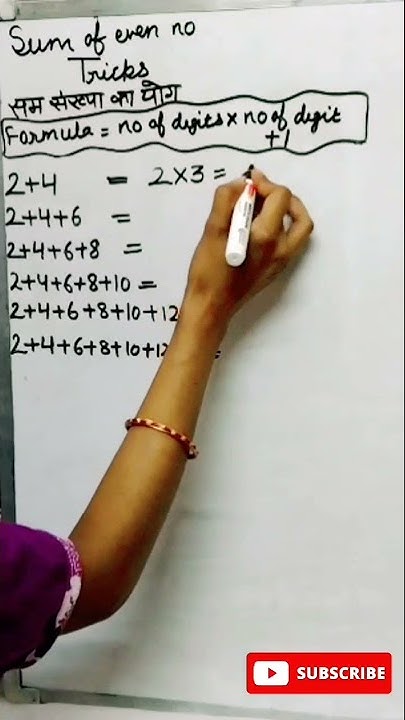 Sum of even no
Tricks
सम संख्या का योग
Formula = no of digits × no of digit
+1
2+4 = 2×3 =
2+4+6 =
2+4+6+8 =
2+4+6+8+10 =
2+4+6+8+10+12
2+4+6+8+10+12 =
SUBSCRIBE